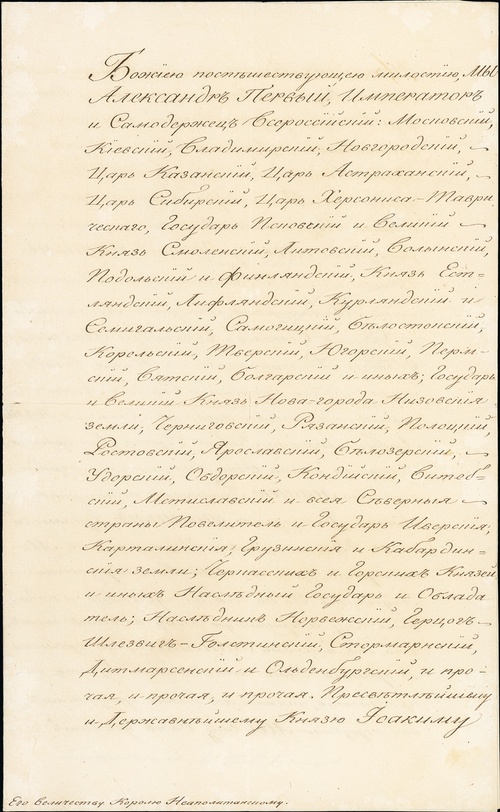 Божіею поспѣшествующею милостію, МЫ
Александръ Первый, Императоръ
и Самодержецъ Всероссійскій: Московскій,
Кіевскій, Владимирскій, Новгородскій, —
Царь Казанскій, Царь Астраханскій, —
Царь Сибирскій, Царь Херсониса-Таври
ческаго, Государь Псковскій и Великій —
Князь Смоленскій, Литовскій, Волынскій,
Подольскій и Финляндскій, Князь Ест=
ляндскій, Лифляндскій, Курляндскій и
Семигальскій, Самогицкій, Бѣлостокскій,
Корельскій, Тверскій, Югорскій, Перм-
скій, Вятскій, Болгарскій и иныхъ; Государь
и Великій Князь Нова-города Низовскія
земли, Черниговскій, Рязанскій, Полоцкій,
Ростовскій, Ярославскій, Бѣлозерскій, —
Удорскій, Обдорскій, Кондійскій, Витеб-
скій, Мстиславскій и всея Сѣверныя —
страны Повелитель и Государь Иверскія,
Карталинскія, Грузинскія и Кабардин-
скія земли; Черкасскихъ и Горскихъ Князей
и иныхъ Наслѣдный Государь и Облада
тель; Наслѣдникъ Норвежскій, Герцогъ
Шлезвигъ-Голстинскій, Стормарнскій,
Дитмарсенскій и Ольденбургскій, и про-
чая, и прочая, и прочая. Пресвѣтлѣйшему
и Державнѣйшему Князю Іоакиму
Его Величеству Королю Неаполитанскому.